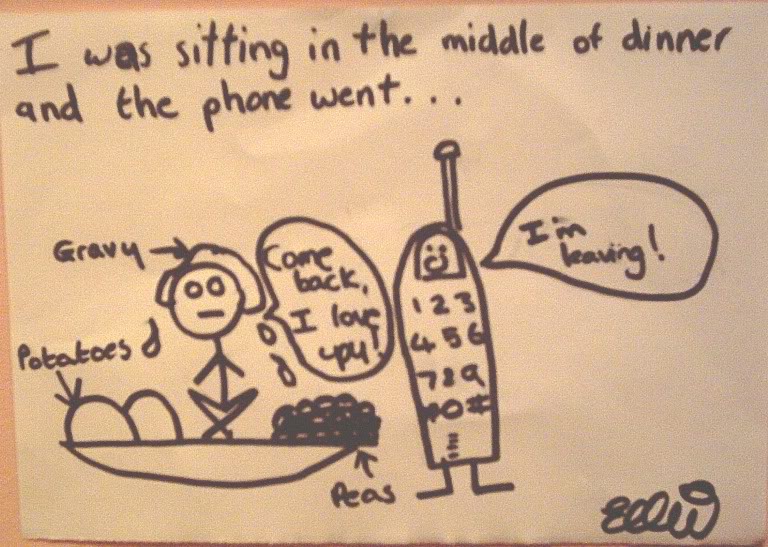 I was sitting in the middle of dinner
and the phone went...
Gravy
Come
back,
I love
you!
I'm
leaving!
Potatoes
1 2 3
4 5 6
7 8 9
* 0 #
Peas